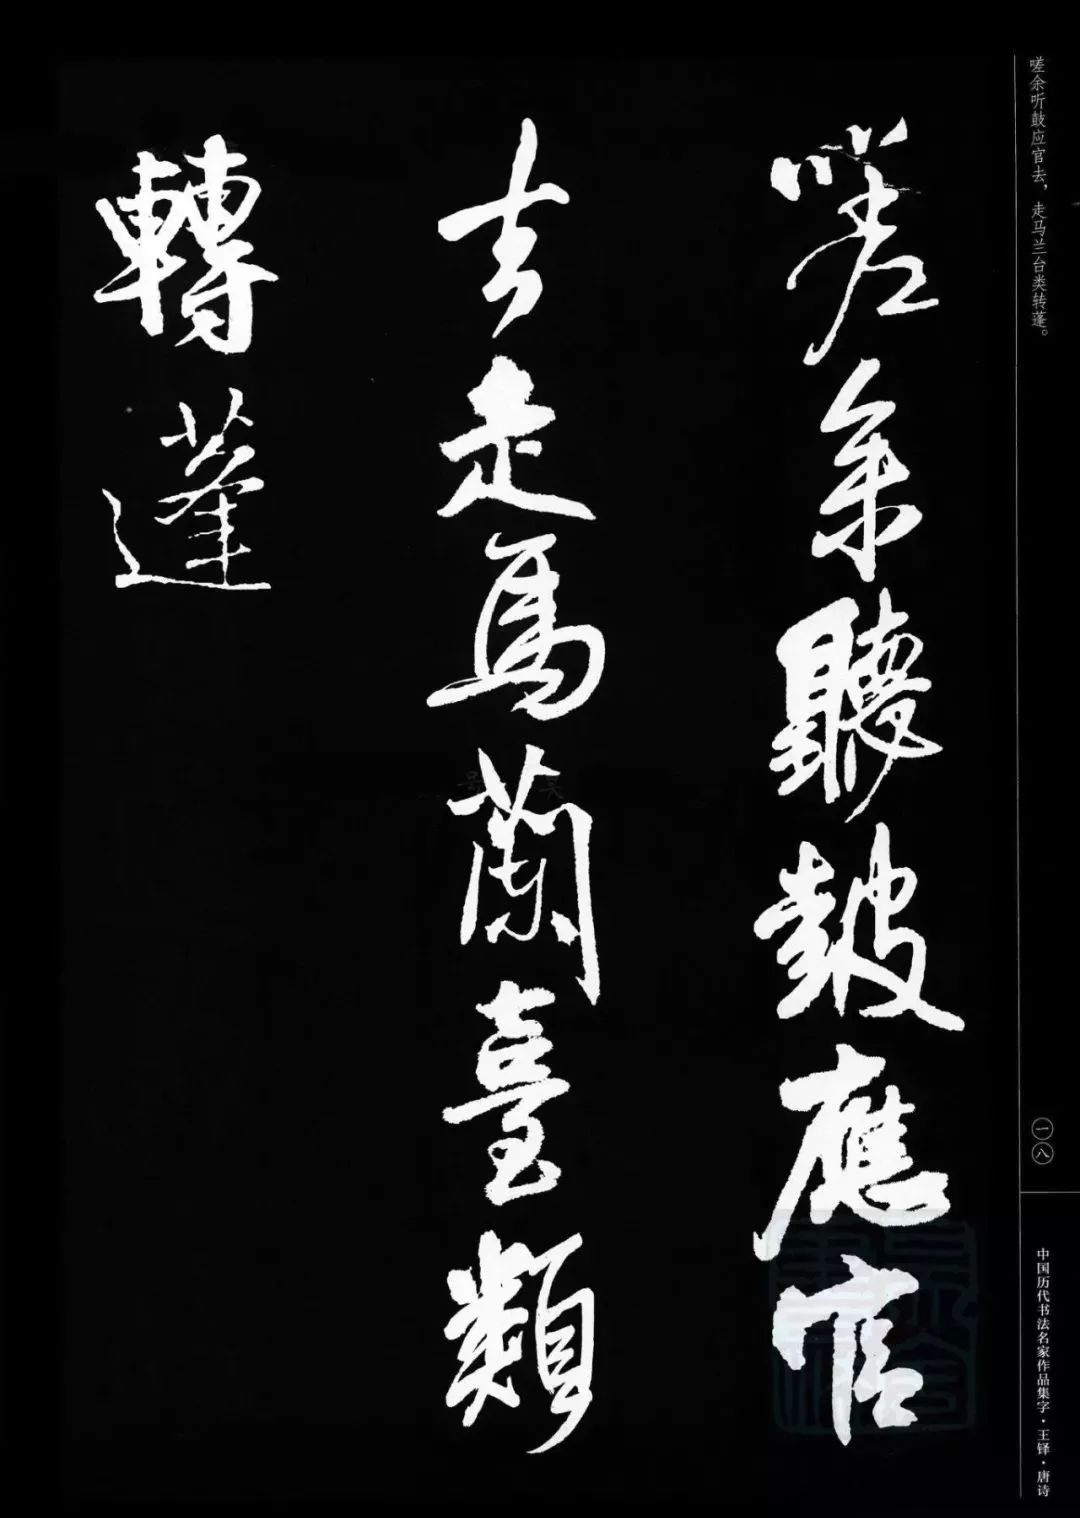 嗟余听鼓应官去，走马兰台类转蓬。
嗟余聽鼓應官
去走馬蘭臺類
轉蓬
一八
中国历代书法名家作品集字·王铎·唐诗